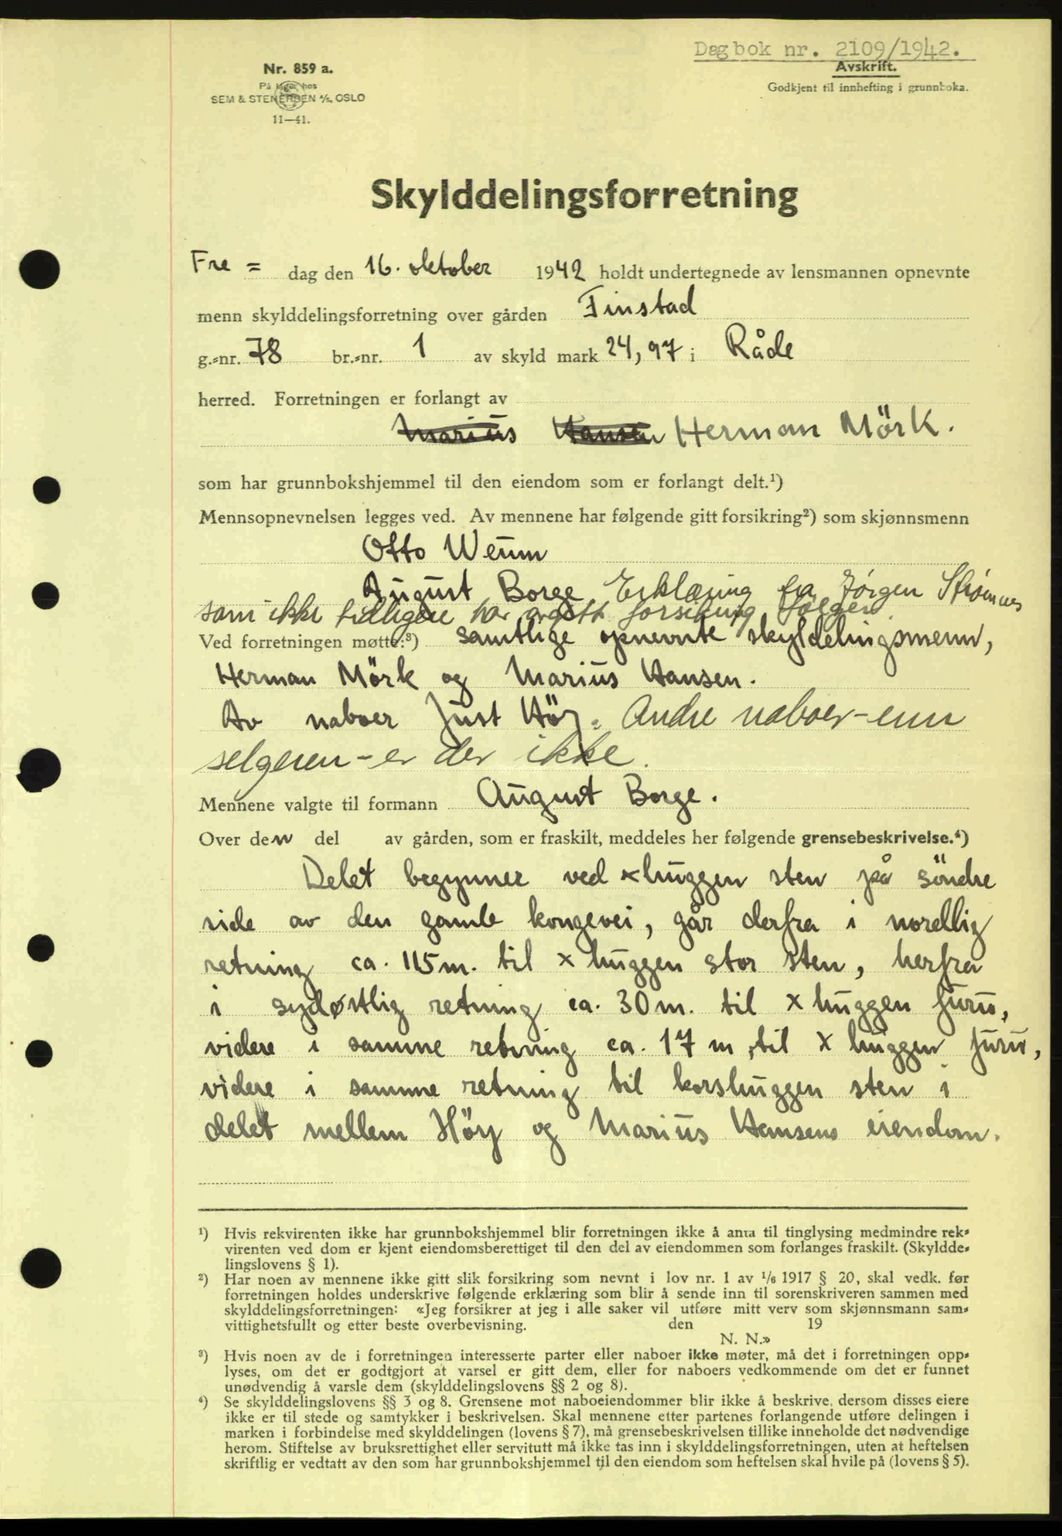 Dagbok nr. 2109/1942.
Avskrift.
Godkjent til innhefting i grunnboka.
Nr. 859 a.
På lager hos
SEM & STENERSEN A/S, OSLO
11—41.
Skylddelingsforretning
Fre = dag den 16. oktober 1942 holdt undertegnede av lensmannen opnevnte
menn skylddelingsforretning over gården Finstad
g.-nr. 78 br.-nr. 1 av skyld mark 24,97 i Råde
herred. Forretningen er forlangt av
Marius Hansen Herman Mörk.
som har grunnbokshjemmel til den eiendom som er forlangt delt.¹)
Mennsopnevnelsen legges ved. Av mennene har følgende gitt forsikring²) som skjønnsmenn
Otto Weum
August Borge Erklæring fra Jørgen Strømnes
som ikke tidligere har avgitt forsikring følger
Ved forretningen møtte:³) samtlige opnevnte skyldelingsmenn,
Herman Mörk og Marius Hansen.
Av naboer Just Höj. Andre naboer - enn
selgeren - er der ikke.
Mennene valgte til formann August Borge.
Over den del av gården, som er fraskilt, meddeles her følgende grensebeskrivelse.⁴)
Delet begynner ved x huggen sten på söndre
side av den gamle kongevei, går derfra i nordlig
retning ca. 115 m. til x huggen stor sten, herfra
i sydøstlig retning ca. 30 m. til x huggen furu,
videre i samme retning ca. 17 m, til x huggen furu,
videre i samme retning til korshuggen sten i
delet mellem Höj og Marius Hansens eiendom.
¹) Hvis rekvirenten ikke har grunnbokshjemmel blir forretningen ikke å anta til tinglysing medmindre rek-
virenten ved dom er kjent eiendomsberettiget til den del av eiendommen som forlanges fraskilt. (Skyldde-
lingslovens § 1).
²) Har noen av mennene ikke gitt slik forsikring som nevnt i lov nr. 1 av 1/6 1917 § 20, skal vedk. før
forretningen holdes underskrive følgende erklæring som blir å sende inn til sorenskriveren sammen med
skylddelingsforretningen: «Jeg forsikrer at jeg i alle saker vil utføre mitt verv som skjønnsmann sam-
vittighetsfullt og etter beste overbevisning. den 19
N. N.»
³) Hvis noen av de i forretningen interesserte parter eller naboer ikke møter, må det i forretningen opp-
lyses, om det er godtgjort at varsel er gitt dem, eller for naboers vedkommende om det er funnet
unødvendig å varsle dem (skylddelingslovens §§ 2 og 8).
⁴) Se skylddelingslovens §§ 3 og 8. Grensene mot naboeiendommer blir ikke å beskrive, dersom disses eiere
ikke er til stede og samtykker i beskrivelsen. Skal mennene etter partenes forlangende utføre delingen i
marken i forbindelse med skylddelingen (lovens § 7), må grensebeskrivelsen tillike inneholde det nødvendige
herom. Stiftelse av bruksrettighet eller servitutt må ikke tas inn i skylddelingsforretningen, uten at heftelsen
skriftlig er vedtatt av den som har grunnbokshjemmel til den eiendom som heftelsen skal hvile på (lovens § 5).